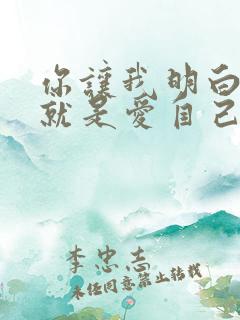 你讓我明白
就是愛自己
李忠志
未经同意禁止转载